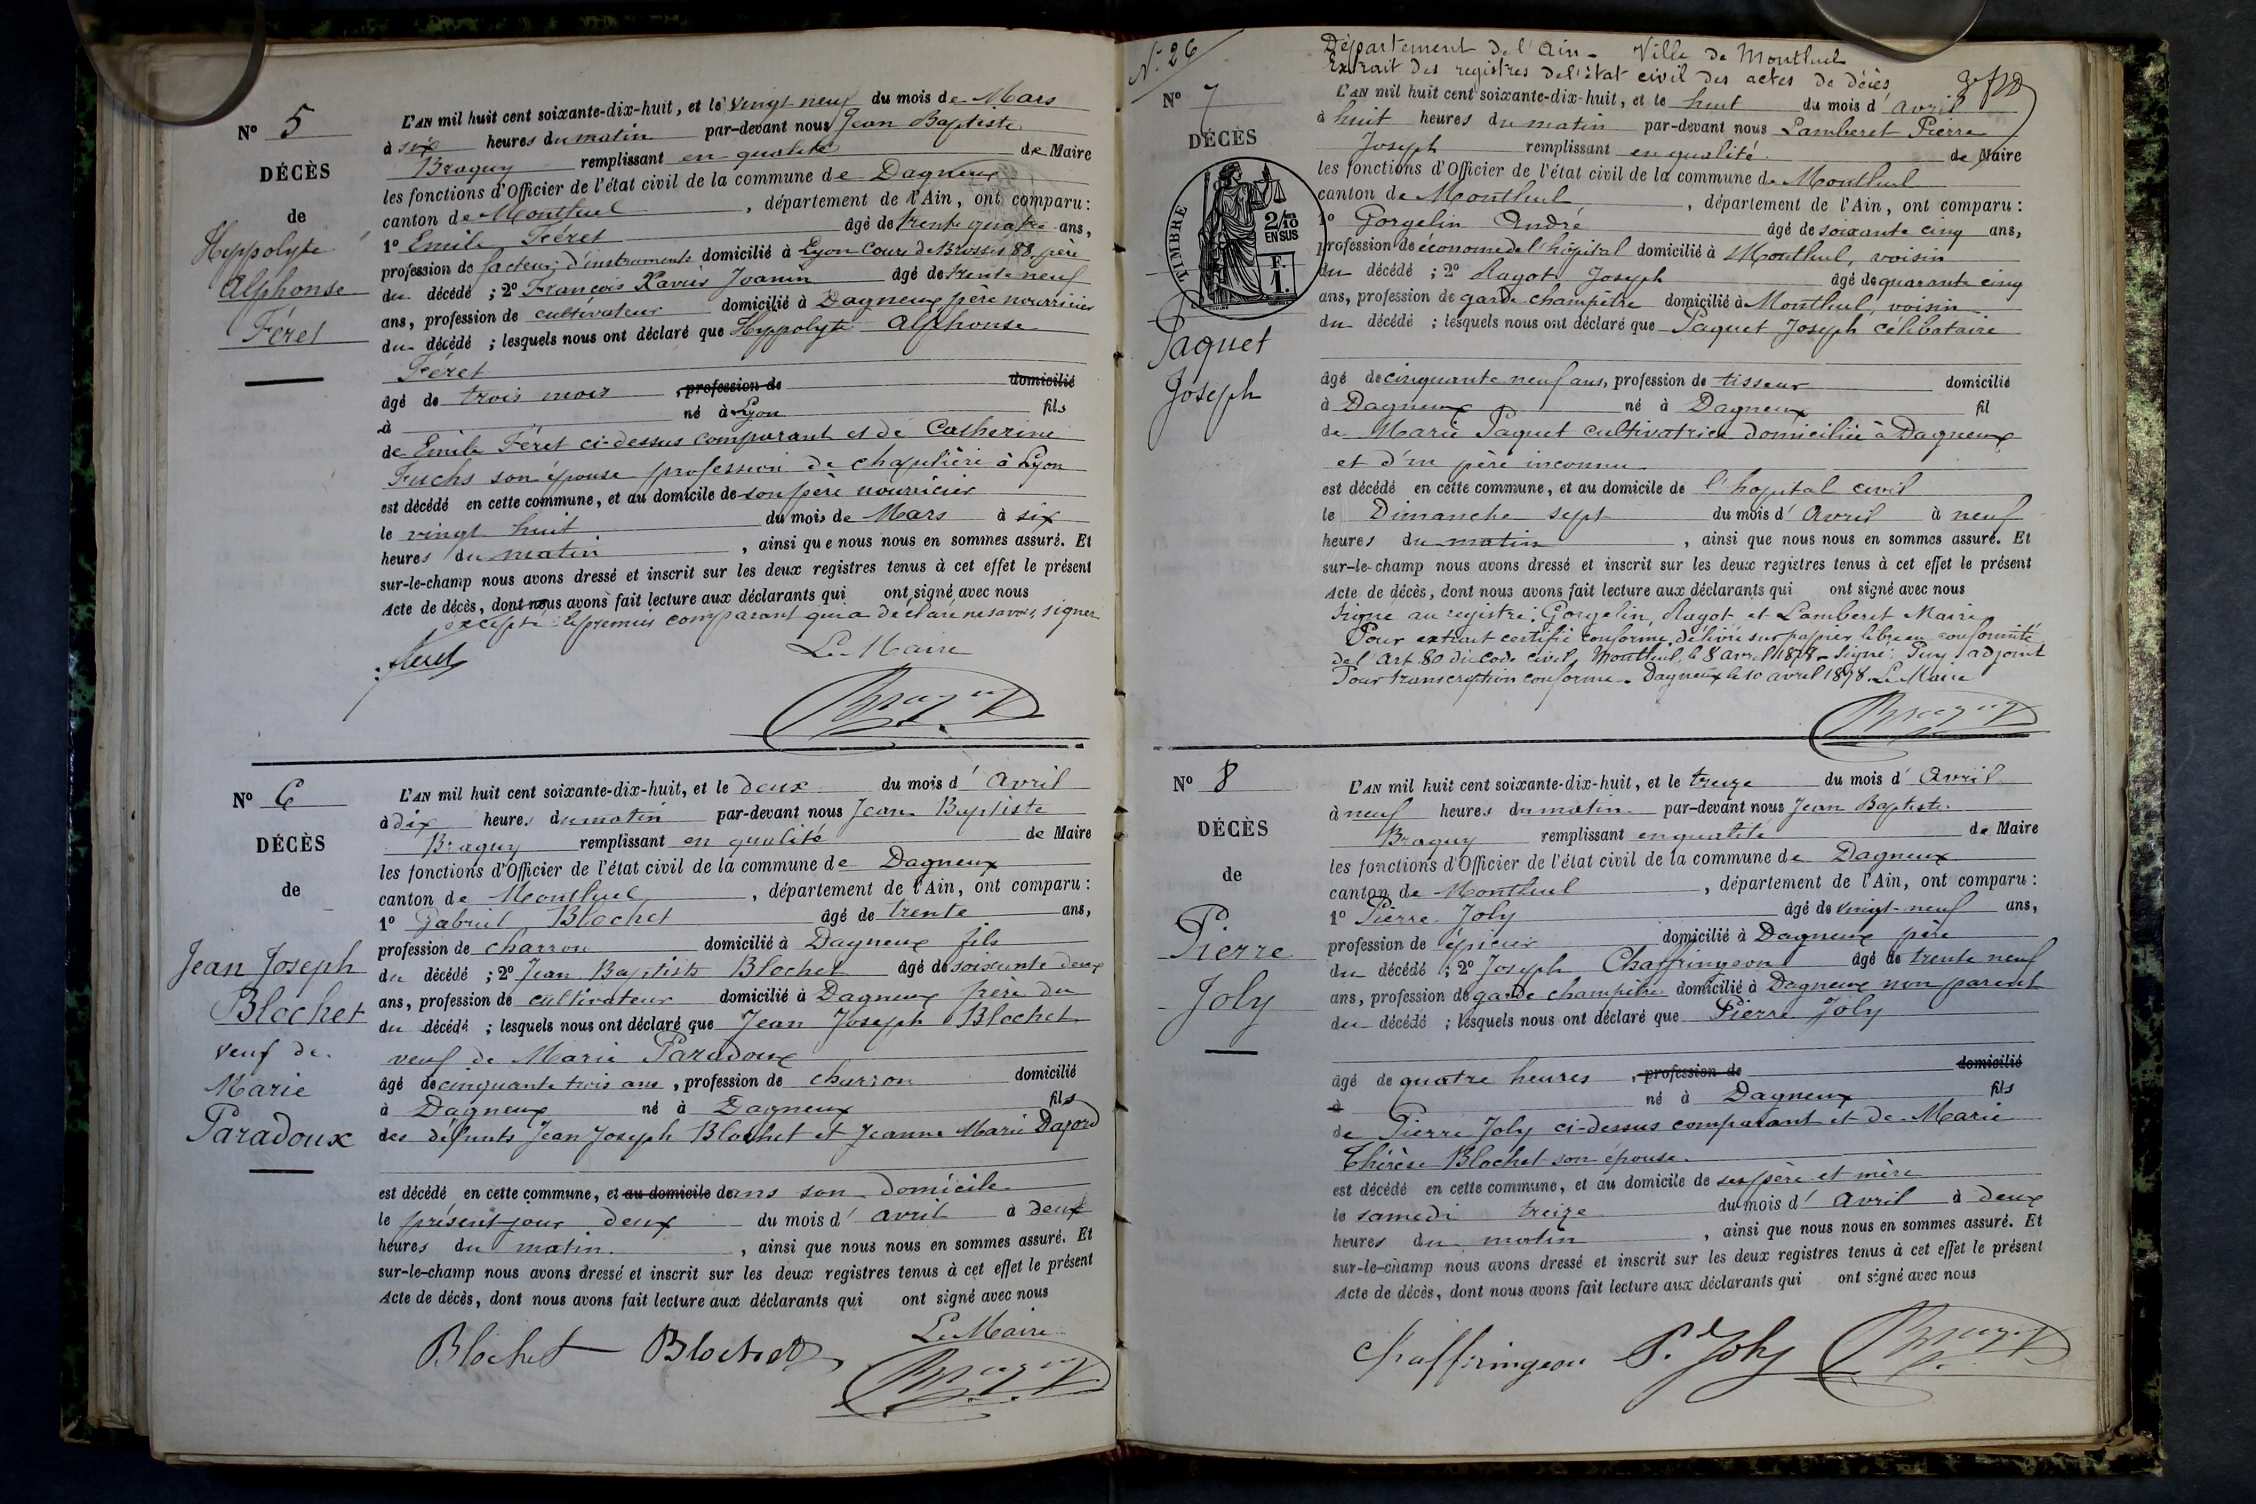 N° 5
DÉCÈS
de
Hyppolyte
Alphonse
Féret
L'AN mil huit cent soixante-dix-huit, et le vingt neuf du mois de Mars
à six heures du matin par-devant nous Jean Baptiste
Braguy remplissant en qualité de Maire
les fonctions d'Officier de l'état civil de la commune de Dagneux
canton de Montluel, département de l'Ain, ont comparu :
1° Emile Féret âgé de trente quatre ans,
profession de facteur d'instruments domicilié à Lyon Cours de Brosses 88, père
du décédé ; 2° François Xavier Joanin âgé de trente neuf
ans, profession de cultivateur domicilié à Dagneux père nourricier
du décédé ; lesquels nous ont déclaré que Hyppolyte Alphonse
Féret
âgé de trois mois, profession de domicilié
à né à Lyon fils
de Emile Féret ci-dessus comparant et de Catherine
Fuchs son épouse profession de chapelière à Lyon
est décédé en cette commune, et au domicile de son père nourricier
le vingt huit du mois de Mars à six
heures du matin, ainsi que nous nous en sommes assuré. Et
sur-le-champ nous avons dressé et inscrit sur les deux registres tenus à cet effet le présent
Acte de décès, dont nous avons fait lecture aux déclarants qui ont signé avec nous
excepté le premier comparant qui a déclaré ne savoir signer
Féret Le Maire
Braguy
N° 6
DÉCÈS
de
Jean Joseph
Blochet
veuf de
Marie
Paradoux
L'AN mil huit cent soixante-dix-huit, et le deux du mois d'Avril
à dix heures du matin par-devant nous Jean Baptiste
Braguy remplissant en qualité de Maire
les fonctions d'Officier de l'état civil de la commune de Dagneux
canton de Montluel, département de l'Ain, ont comparu :
1° Gabriel Blochet âgé de trente ans,
profession de charron domicilié à Dagneux fils
du décédé ; 2° Jean Baptiste Blochet âgé de soixante deux
ans, profession de cultivateur domicilié à Dagneux frère du
du décédé ; lesquels nous ont déclaré que Jean Joseph Blochet
veuf de Marie Paradoux
âgé de cinquante trois ans, profession de charron domicilié
à Dagneux né à Dagneux fils
des défunts Jean Joseph Blochet et Jeanne Marie Dajord
est décédé en cette commune, et au domicile dans son domicile
le présent jour deux du mois d'avril à deux
heures du matin, ainsi que nous nous en sommes assuré. Et
sur-le-champ nous avons dressé et inscrit sur les deux registres tenus à cet effet le présent
Acte de décès, dont nous avons fait lecture aux déclarants qui ont signé avec nous
Le Maire
Blochet Blochet Braguy
N° 26
Département de l'Ain - Ville de Montluel
Extrait des registres de l'état civil des actes de décès
N° 7
DÉCÈS
TIMBRE
2/10
EN SUS
F.
1.
Paquet
Joseph
L'AN mil huit cent soixante-dix-huit, et le huit du mois d'avril
à huit heures du matin par-devant nous Lamberet Pierre
Joseph remplissant en qualité de Maire
les fonctions d'Officier de l'état civil de la commune de Montluel
canton de Montluel, département de l'Ain, ont comparu :
1° Gorgelin André âgé de soixante cinq ans,
profession de économe de l'hôpital domicilié à Montluel, voisin
du décédé ; 2° Ragot Joseph âgé de quarante cinq
ans, profession de garde champêtre domicilié à Montluel, voisin
du décédé ; lesquels nous ont déclaré que Paquet Joseph célibataire
âgé de cinquante neuf ans, profession de tisseur domicilié
à Dagneux né à Dagneux fil
de Marie Paquet cultivatrice domiciliée à Dagneux
et d'un père inconnu
est décédé en cette commune, et au domicile de l'hopital civil
le Dimanche sept du mois d'Avril à neuf
heures du matin, ainsi que nous nous en sommes assuré. Et
sur-le-champ nous avons dressé et inscrit sur les deux registres tenus à cet effet le présent
Acte de décès, dont nous avons fait lecture aux déclarants qui ont signé avec nous
Signé au registre : Gorgelin, Ragot et Lamberet Maire
Pour extrait certifié conforme, délivré sur papier libre en conformité
de l'Art. 80 du Code civil, Montluel, le 8 avril 1878 - Signé : Puy adjoint
Pour transcription conforme - Dagneux le 10 avril 1878. Le Maire
Braguy
N° 8
DÉCÈS
de
Pierre
Joly
L'AN mil huit cent soixante-dix-huit, et le treize du mois d'Avril
à neuf heures du matin par-devant nous Jean Baptiste
Braguy remplissant en qualité de Maire
les fonctions d'Officier de l'état civil de la commune de Dagneux
canton de Montluel, département de l'Ain, ont comparu :
1° Pierre Joly âgé de vingt-neuf ans,
profession de épicier domicilié à Dagneux père
du décédé ; 2° Joseph Chaffringeon âgé de trente neuf
ans, profession de garde champêtre domicilié à Dagneux non parent
du décédé ; lesquels nous ont déclaré que Pierre Joly
âgé de quatre heures, profession de domicilié
à né à Dagneux fils
de Pierre Joly ci-dessus comparant et de Marie
Thérèse Blochet son épouse
est décédé en cette commune, et au domicile de ses père et mère
le samedi treize du mois d'Avril à deux
heures du matin, ainsi que nous nous en sommes assuré. Et
sur-le-champ nous avons dressé et inscrit sur les deux registres tenus à cet effet le présent
Acte de décès, dont nous avons fait lecture aux déclarants qui ont signé avec nous
Chaffringeon P. Joly Braguy